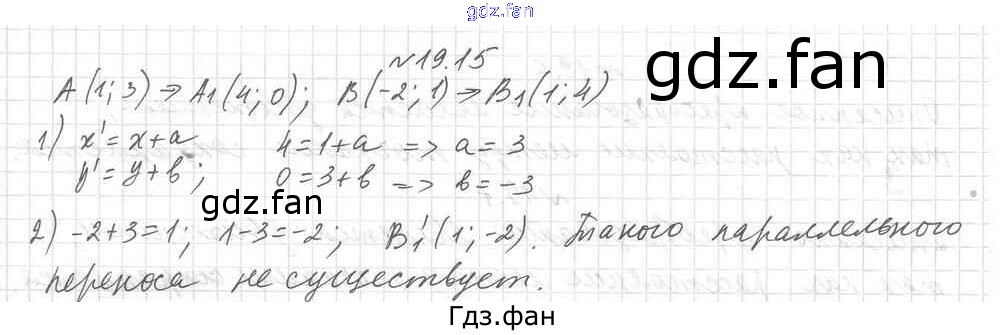 gdz.fan
№19.15
gdz.fan
A(1; 3) ⇒ A₁(4; 0); B(-2; 1) ⇒ B₁(1; 4)
1) x' = x + a 4 = 1 + a => a = 3
y' = y + b; 0 = 3 + b => b = -3
gdz.fan
2) -2 + 3 = 1; 1 - 3 = -2; B₁'(1; -2). Такого параллельного
переноса не существует.
Гдз.фан